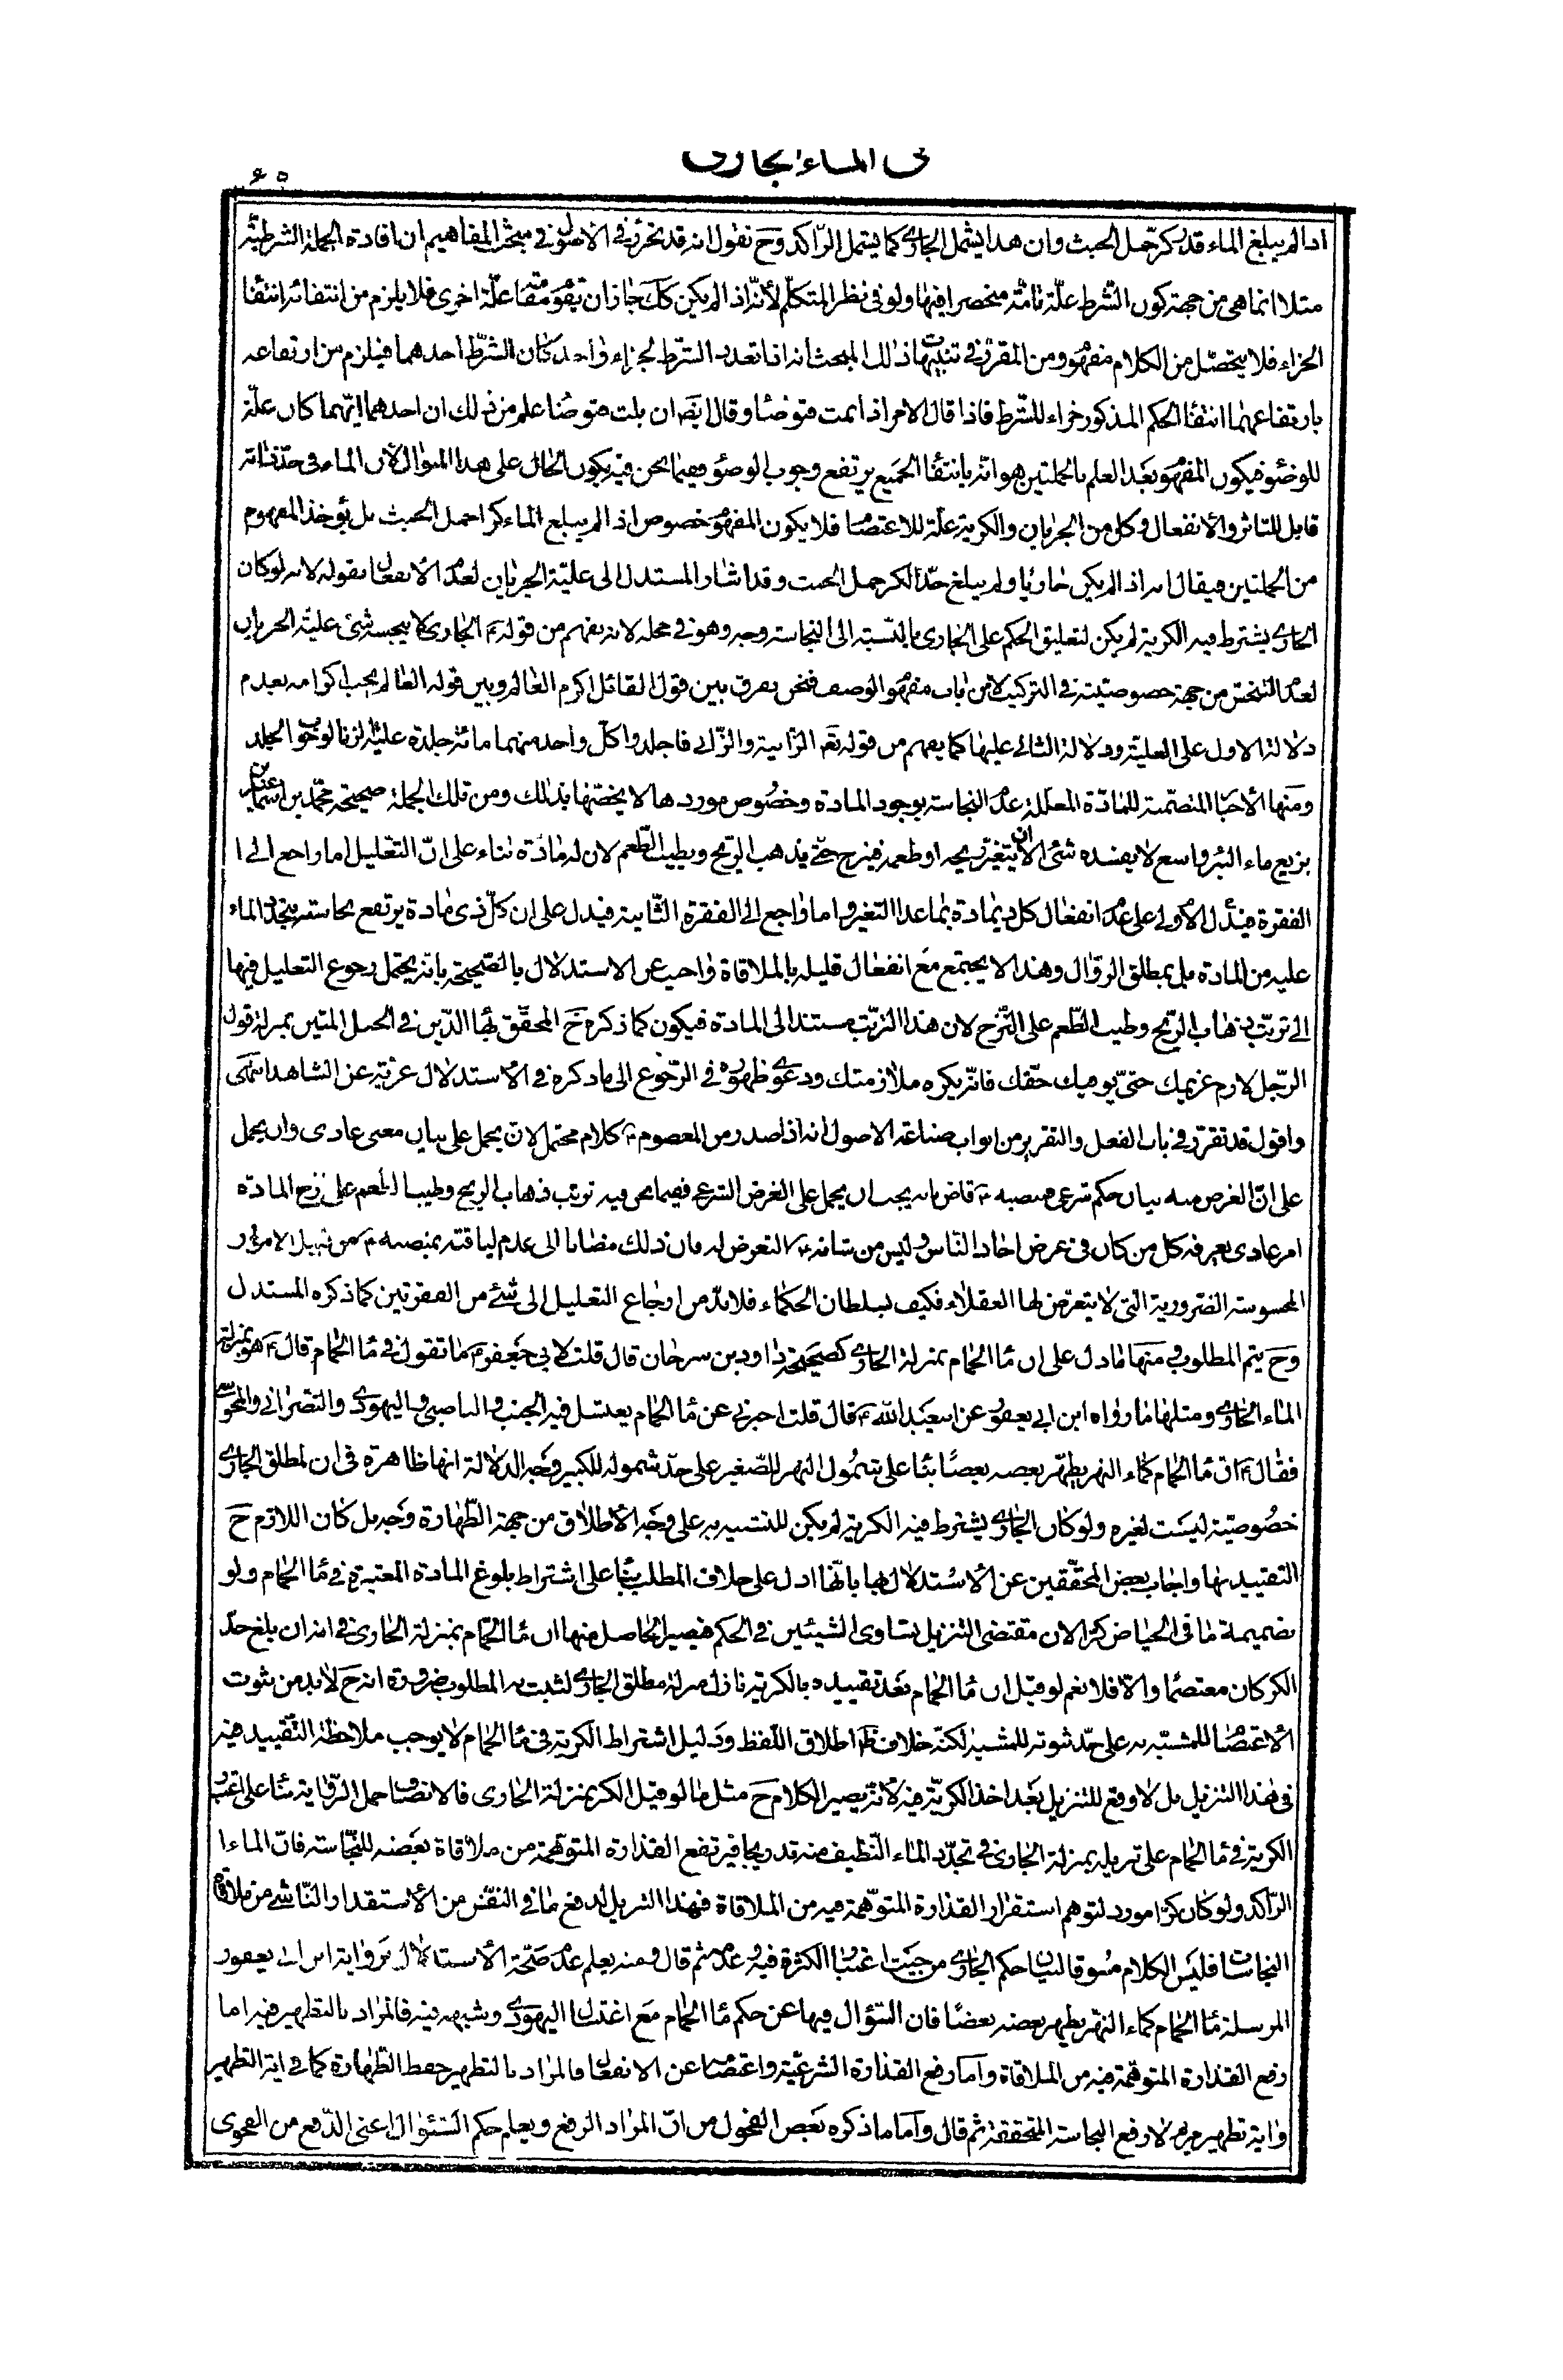 فی الماء الجاری
٦٥
اذا لم يبلغ الماء قدر كرّ حمل الخبث وان هذا يشمل الجارى كما يشمل الرّاكد وح نقول انه قد تحرّر فى الاصول فى مبحث المفاهيم ان افادة الجملة الشرطيّة
مثلا انما هى من جهة كون الشّرط علّة تامّة منحصرا فيها ولو فى نظر المتكلّم لأنّه اذا لم يكن كك جاز ان تقوم مقامه علّة اخرى فلا يلزم من انتفائه انتفاء
الجزاء فلا يتحصّل من الكلام مفهوم ومن المقرّر فى تنبيهات ذلك المبحث انه اذا تعدد الشّرط لجزاء واحد كان الشّرط احدهما فيلزم من ارتفاعه
بارتفاعهما انتفاء الحكم المذكور جزاء للشّرط فاذا قال الامر اذا نمت فتوضّا وقال ايضا ان بلت فتوضّا علم من ذلك ان احدهما ايّهما كان علّة
للوضوء فيكون المفهوم بعد العلم بالجملتين هو انّه بانتفاء الجميع يرتفع وجوب الوضوء وفيما نحن فيه يكون الحال على هذا المنوال لأن الماء فى حدّ ذاته
قابل للتاثر والأنفعال وكل من الجريان والكرية علّة للاعتصام فلا يكون المفهوم خصوص اذا لم يبلغ الماء كرا حمل الخبث بل يؤخذ المفهوم
من الجملتين فيقال انه اذا لم يكن جاريا ولم يبلغ حدّ الكر حمل الخبث وقد اشار المستدل الى عليّة الجريان لعدم الانفعال بقوله لانه لو كان
الجارى يشترط فيه الكرية لم يكن لتعليق الحكم على الجارى بالنّسبة الى النجاسة وجه وهو فى محله لانه يفهم من قوله ع الجارى لا ينجسه شئ عليّة الجريان
لعدم التنجّس من جهة خصوصيّته فى التركيب لا من باب مفهوم الوصف فنحن نفرق بين قول القائل اكرم العالم وبين قوله العالم يجب اكرامه بعدم
دلالة الاول على العليّة ودلالة الثانى عليها كما يفهم من قوله تعم الزّانية والزّانى فاجلدوا كلّ واحد منهما مائة جلدة عليّة الزنا لوجوب الجلد
ومنها الأخبار المتضمّنة للمادّة المعلّلة عدم النجاسة بوجود المادة وخصوص موردها لا يخصّها بذلك ومن تلك الجملة صحيحة محمّد بن اسماعيل بن
بزيع ماء البئر واسع لا يفسده شئ الّا ان يتغيّر ريحه او طعمه فينزح حتّى يذهب الرّيح ويطيب الطّعم لان له مادّة بناء على انّ التّعليل اما راجع الى ا
الفقرة الأولى فيدل على عدم انفعال كل ذى مادة بما عدا التغير واما راجع الى الفقرة الثّانية فيدل على ان كلّ ذى مادة يرتفع نجاسته بتجدّد الماء
عليه من المادة بل بمطلق الزوال وهذا لا يجتمع مع انفعال قليله بالملاقاة واجيب عن الاستدلال بالصّحيحة بانه يحتمل رجوع التعليل فيها
الى ترتّب ذهاب الرّيح وطيب الطّعم على النّزح لان هذا الترتّب مستند الى المادة فيكون كما ذكره ح المحقّق بهاء الدّين فى الحبل المتين بمنزلة قول
الرّجل لازم غريمك حتّى يوفيك حقّك فانّه يكره ملازمتك ودعوى ظهوره فى الرّجوع الى ما ذكره فى الأستدلال عريّة عن الشاهد انتهى
واقول قد تقرّر فى باب الفعل والتقرير من ابواب صناعة الاصول انه اذا صدر من المعصوم ع كلام محتمل لان يحمل على بيان معنى عادى وان يحمل
على انّ الغرض منه بيان حكم شرعى فمنصبه ع قاض بانه يجب ان يحمل على الغرض الشرعى ففيما نحن فيه ترتّب ذهاب الريح وطيب الطّعم على نزح المادّة
امر عادى يعرفه كل من كان فى عرض احاد النّاس وليس من شانه ع التعرض له فان ذلك مضافا الى عدم لياقته بمنصبه ع من قبيل الامور
المحسوسة الضّرورية التى لا يتعرّض لها العقلاء فكيف بسلطان الحكماء فلا بدّ من ارجاع التعليل الى شئ من الفقرتين كما ذكره المستدل
وح يتم المطلوب ومنها ما دل على ان ماء الحمّام بمنزلة الجارى كصحيحة داود بن سرحان قال قلت لابى جعفر ع ما تقول فى ماء الحمّام قال ع هو بمنزلة
الماء الجارى ومثلها ما رواه ابن ابى يعفور عن ابيعبد الله ع قال قلت اخبرنى عن ماء الحمّام يغتسل فيه الجنب والناصبى واليهودى والنّصرانى والمجوسى
فقال ع انّ ماء الحمام كماء النهر يطهّر بعضه بعضًا بناء على شمول النهر للصّغير على حدّ شموله للكبير وجه الدلالة انها ظاهرة فى ان لمطلق الجارى
خصُوصيّة ليست لغيره ولو كان الجارى يشترط فيه الكرية لم يكن للتشبيه به على وجه الأطلاق من جهة الطّهارة وجه بل كان اللازم ح
التقييد بها واجاب بعض المحقّقين عن الأستدلال بها بانّها ادل على خلاف المطلب بناء على اشتراط بلوغ المادة المعتبرة فى ماء الحمام ولو
بضميمة ما فى الحياض كرا لان مقتضى التنزيل تساوى الشيئين فى الحكم فيصير الحاصل منها ان ماء الحمّام بمنزلة الجارى فى انه ان بلغ حدّ
الكر كان معتصما والّا فلا نعم لو قيل ان ماء الحمّام بعد تقييده بالكرية نازل منزلة مطلق الجارى لثبت به المطلوب ضرورة انه ح لا بد من ثبوت
الأعتصام للمشبّه به على حدّ ثبوته للمشبه لكنّه خلاف ظ اطلاق اللّفظ ودليل اشتراط الكرية فى ماء الحمّام لا يوجب ملاحظة التّقييد فيه
فى هذا التنزيل بل لا وقع للتنزيل بعد اخذ الكريّة فيه لأنّه يصير الكلام ح مثل ما لو قيل الكر بمنزلة الجارى فالانصاف حمل الرّواية بناء على اعتبار
الكرية فى ماء الحمام على تنزيله بمنزلة الجارى فى تجدّد الماء النّظيف منه تدريجا فيرتفع القذارة المتوهّمة من ملاقاة بعضه للنّجاسة فانّ الماء ا
الرّاكد ولو كان كرّا مورد لتوهم استقرار القذارة المتوهّمة فيه من الملاقاة فهذا التنزيل لدفع ما فى النفس من الأستقذار النّاشى من ملاقاة
النجاسات فليس الكلام مسوقا لبيان حكم الجارى من حيث اعتبار الكثرة فيه وعدمه ثم قال ومنه يعلم عدم صحّة الأستدلال برواية ابن ابى يعفور
المرسلة ماء الحمّام كماء النهر يطهر بعضه بعضًا فان السّؤال فيها عن حكم ماء الحمّام مع اغتسال اليهودى وشبهه فيه فالمراد بالتطهير فيه اما
رفع القذارة المتوهّمة فيه من الملاقاة وأما رفع القذارة الشرعيّة واعتصامه عن الانفعال فالمراد بالتطهير حفظ الطّهارة كما فى اية التطهير
واية تطهير مريم لا رفع النجاسة المتحققة ثم قال وأما ما ذكره بعض الفحول من انّ المراد الرفع ويعلم حكم السّئوال اعنى الدّفع من الفحوى